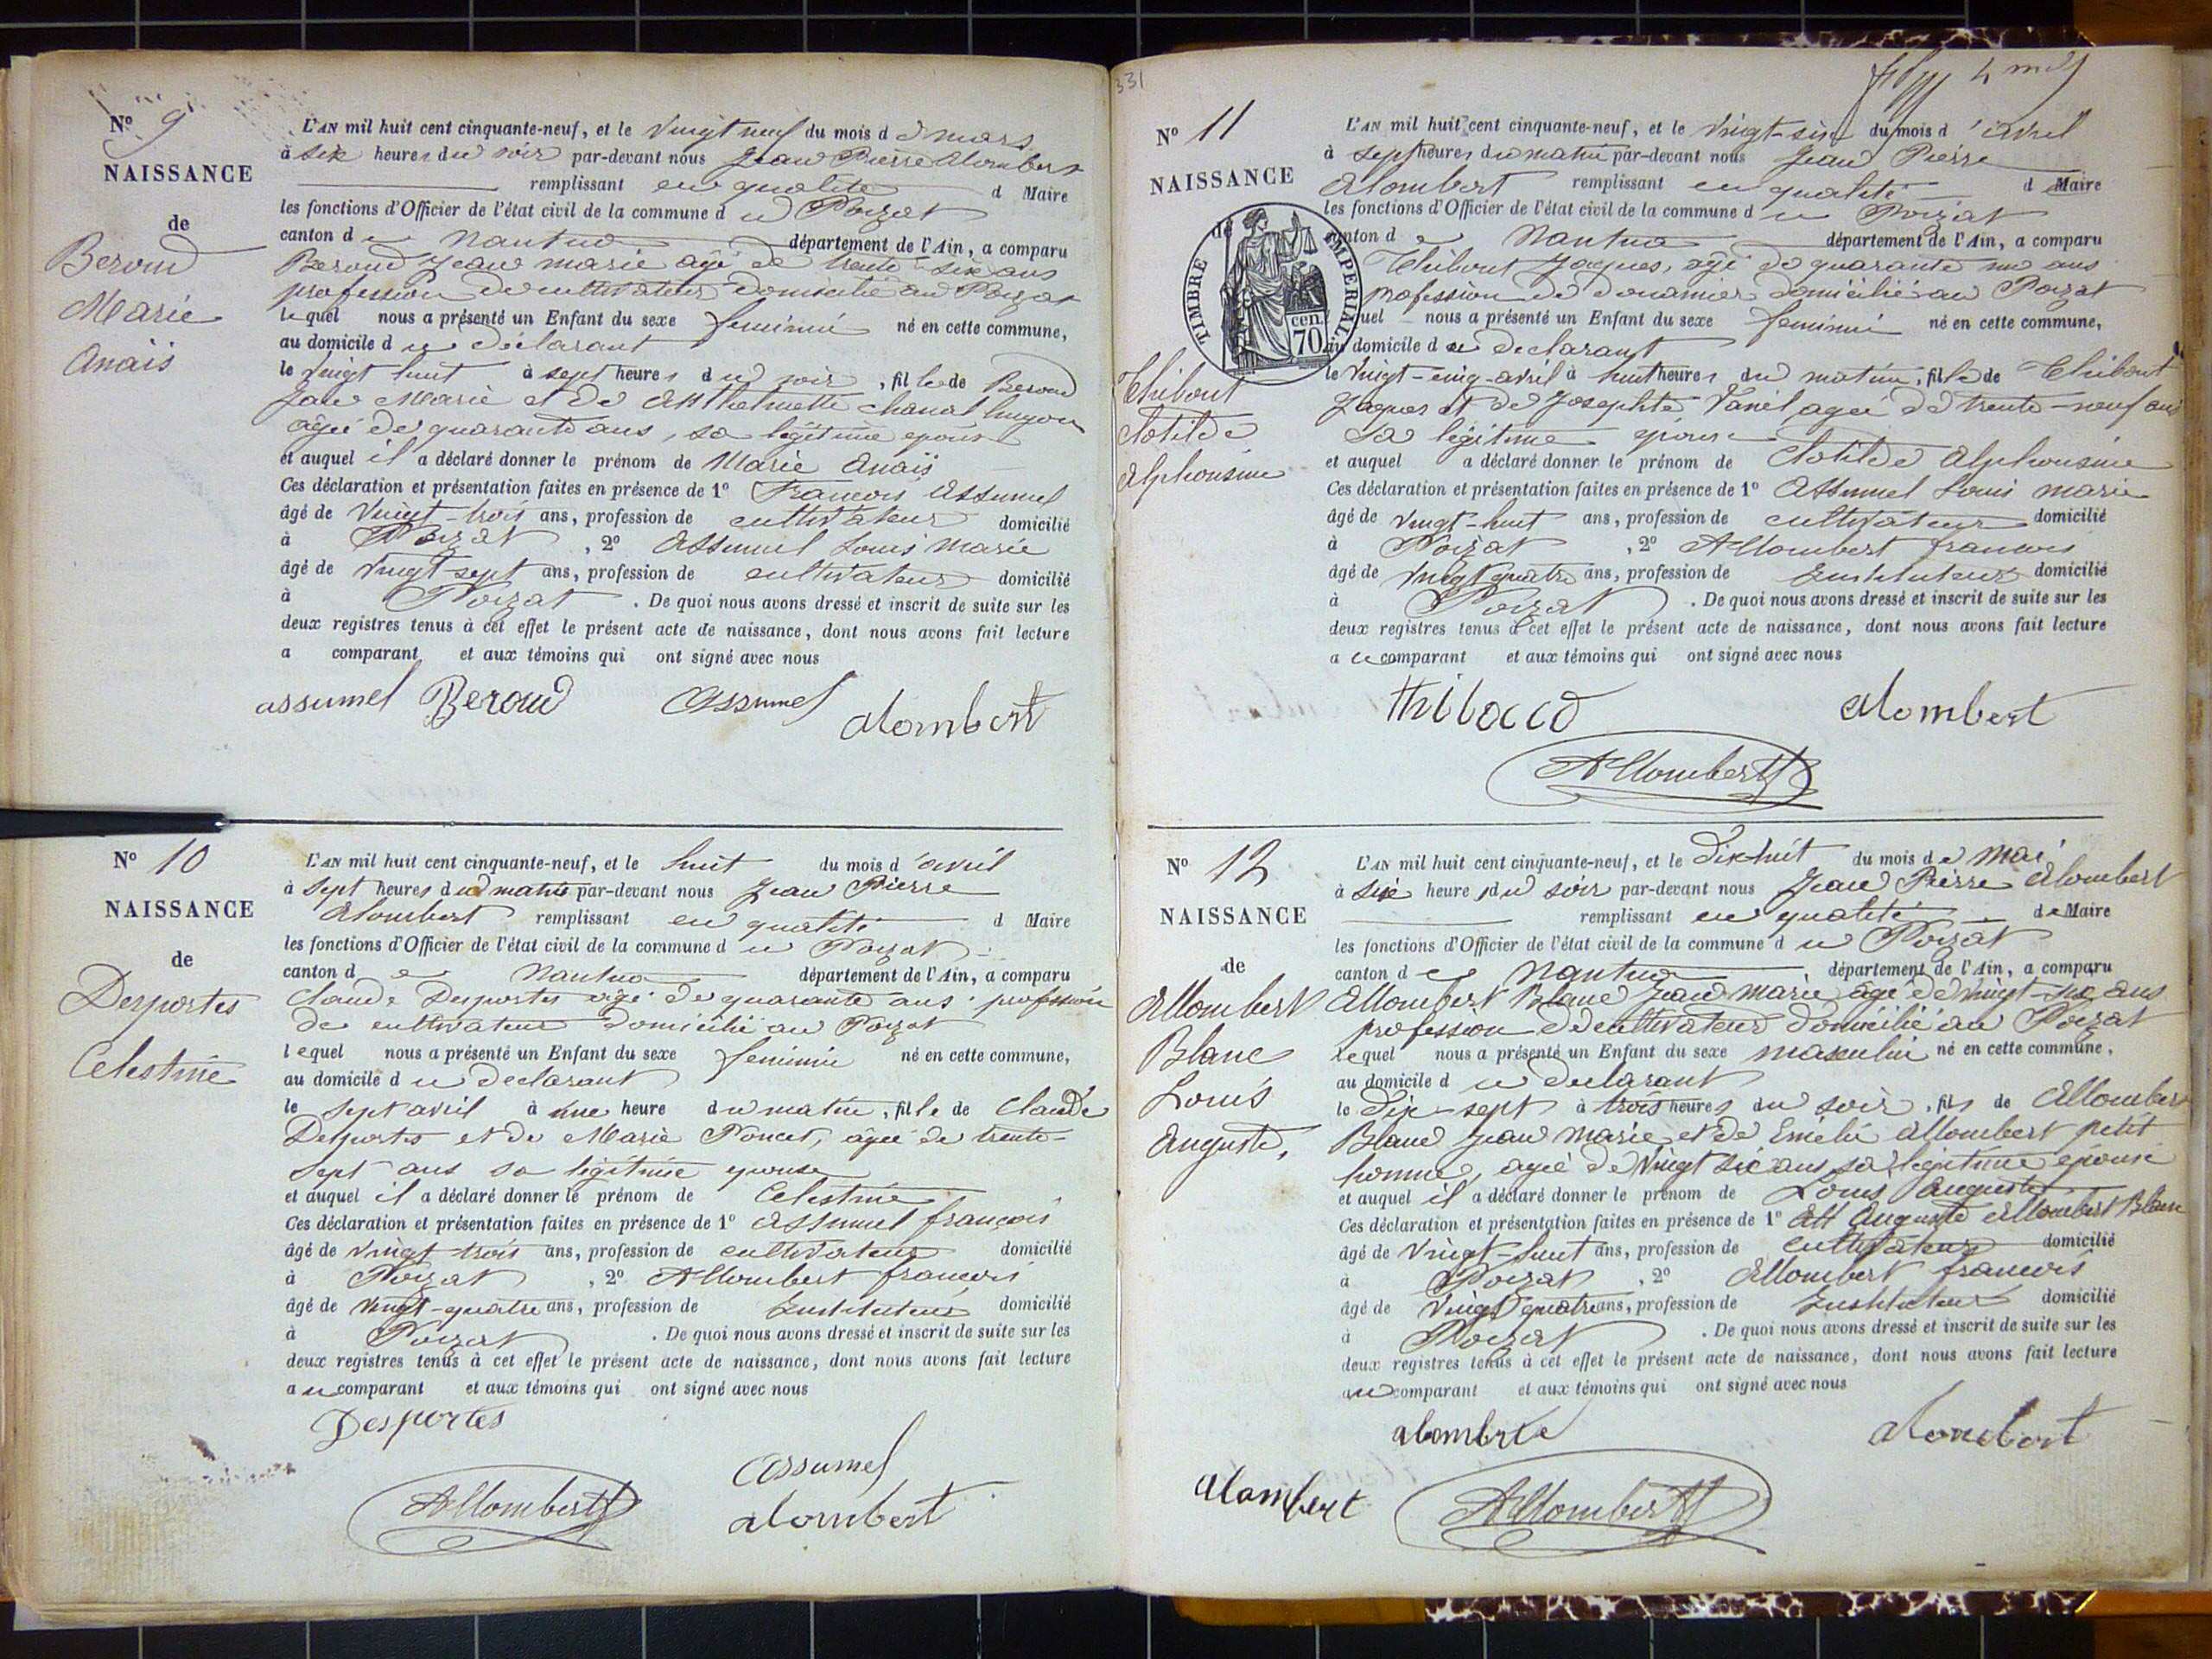 N° 9
NAISSANCE
de
Beroud
Marie
Anaïs
L'AN mil huit cent cinquante-neuf, et le vingt neuf du mois de mars
à six heures du soir par-devant nous Jean Pierre Alombert
remplissant en qualité d Maire
les fonctions d'Officier de l'état civil de la commune du Poizat
canton de Nantua département de l'Ain, a comparu
Beroud Jean Marie agé de trente-six ans
profession de cultivateur domicilié au Poizat
lequel nous a présenté un Enfant du sexe feminin né en cette commune,
au domicile du déclarant
le vingt huit à sept heures du soir, fille de Beroud
Jean Marie et de Anthelmette Chanal hugon
agée de quarante ans, sa légitime epouse
et auquel il a déclaré donner le prénom de Marie Anaïs
Ces déclaration et présentation faites en présence de 1° Francois Assumel
âgé de vingt-trois ans, profession de cultivateur domicilié
à Poizat, 2° Assumel Louis Marie
âgé de vingt sept ans, profession de cultivateur domicilié
à Poizat. De quoi nous avons dressé et inscrit de suite sur les
deux registres tenus à cet effet le présent acte de naissance, dont nous avons fait lecture
a comparant et aux témoins qui ont signé avec nous
assumel Beroud Assumel
alombert
N° 10
NAISSANCE
de
Desportes
Celestine
L'AN mil huit cent cinquante-neuf, et le huit du mois d'avril
à sept heures du matin par-devant nous Jean Pierre
Alombert remplissant en qualité d Maire
les fonctions d'Officier de l'état civil de la commune du Poizat
canton de Nantua département de l'Ain, a comparu
Claude Desportes agé de quarante ans profession
de cultivateur domicilié au Poizat
lequel nous a présenté un Enfant du sexe feminin né en cette commune,
au domicile du declarant
le sept avril à une heure du matin, fille de Claude
Desportes et de Marie Poncet, agée de trente-
sept ans sa légitime epouse
et auquel il a déclaré donner le prénom de Celestine
Ces déclaration et présentation faites en présence de 1° Assumel francois
âgé de vingt-trois ans, profession de cultivateur domicilié
à Poizat, 2° Allombert francois
âgé de vingt-quatre ans, profession de Instituteur domicilié
à Poizat. De quoi nous avons dressé et inscrit de suite sur les
deux registres tenus à cet effet le présent acte de naissance, dont nous avons fait lecture
au comparant et aux témoins qui ont signé avec nous
Desportes
Assumel
Allombert alombert
331
4 mai
N° 11
NAISSANCE
de
TIMBRE IMPERIAL
cen.
70
Thibout
Clotilde
Alphonsine
L'AN mil huit cent cinquante-neuf, et le vingt-six du mois d'avril
à sept heures du matin par-devant nous Jean Pierre
Alombert remplissant en qualité d Maire
les fonctions d'Officier de l'état civil de la commune du Poizat
canton de Nantua département de l'Ain, a comparu
Thibout Jacques, agé de quarante un ans
profession de douanier domicilié au Poizat
lequel nous a présenté un Enfant du sexe feminin né en cette commune,
au domicile du declarant
le vingt-cinq avril à huit heures du matin, fille de Thibout
Jaques et de Josephte Vanel agée de trente-neuf ans
Sa légitime epouse
et auquel a déclaré donner le prénom de Clotilde Alphonsine
Ces déclaration et présentation faites en présence de 1° Assumel Louis Marie
âgé de vingt-huit ans, profession de cultivateur domicilié
à Poizat, 2° Allombert francois
âgé de vingt quatre ans, profession de Instituteur domicilié
à Poizat. De quoi nous avons dressé et inscrit de suite sur les
deux registres tenus à cet effet le présent acte de naissance, dont nous avons fait lecture
au comparant et aux témoins qui ont signé avec nous
alombert
Allombert
N° 12
NAISSANCE
de
Allombert
Blanc
Louis
Auguste,
L'AN mil huit cent cinquante-neuf, et le dix huit du mois de mai
à six heures du soir par-devant nous Jean Pierre Alombert
remplissant en qualité de Maire
les fonctions d'Officier de l'état civil de la commune du Poizat
canton de Nantua département de l'Ain, a comparu
Allombert Blanc Jean Marie agé de vingt-six ans
profession de cultivateur domicilié au Poizat
lequel nous a présenté un Enfant du sexe masculin né en cette commune,
au domicile du declarant
le dix-sept à trois heures du soir, fils de Allombert
Blanc Jean Marie et de Emélie Allombert petit
homme, agée de vingt six ans sa légitime epouse
et auquel il a déclaré donner le prénom de Louis Auguste
Ces déclaration et présentation faites en présence de 1° All Auguste Allombert Blanc
âgé de vingt-huit ans, profession de cultivateur domicilié
à Poizat, 2° Allombert francois
âgé de vingt quatre ans, profession de Instituteur domicilié
à Poizat. De quoi nous avons dressé et inscrit de suite sur les
deux registres tenus à cet effet le présent acte de naissance, dont nous avons fait lecture
au comparant et aux témoins qui ont signé avec nous
alombert
alambert Allombert